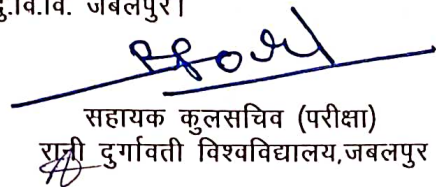 दु.वि.वि. जबलपुर।
सहायक कुलसचिव (परीक्षा)
रानी दुर्गावती विश्वविद्यालय,जबलपुर